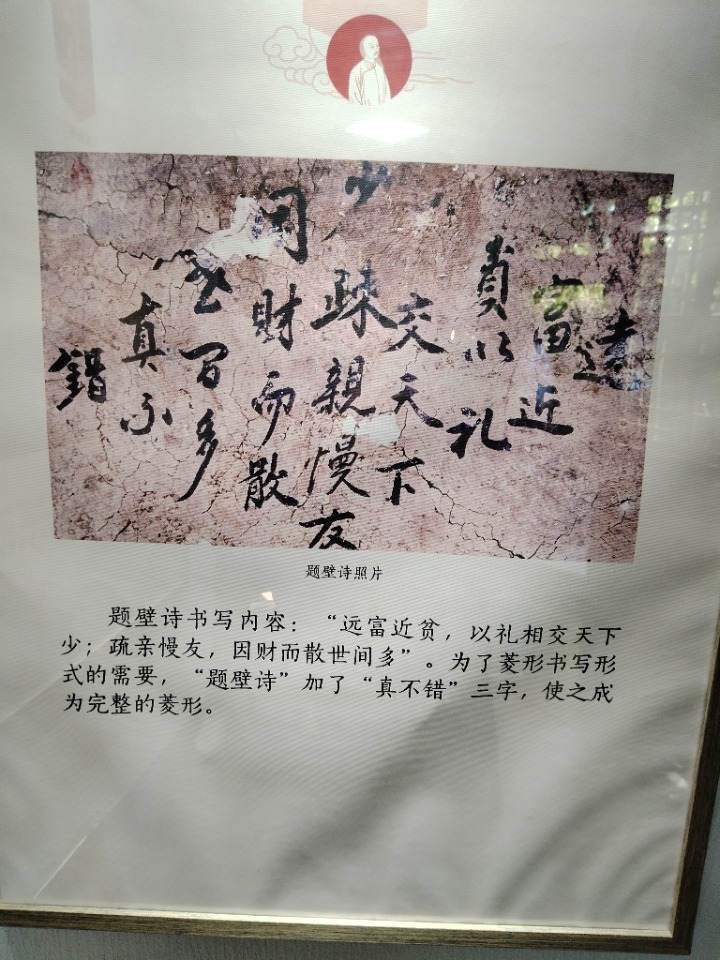 遠
富近
以礼
交天下
少疎親慢友
財而散
多
真不
錯
题壁诗照片
题壁诗书写内容：“远富近贫，以礼相交天下
少；疏亲慢友，因财而散世间多”。为了菱形书写形
式的需要，“题壁诗”加了“真不错”三字，使之成
为完整的菱形。